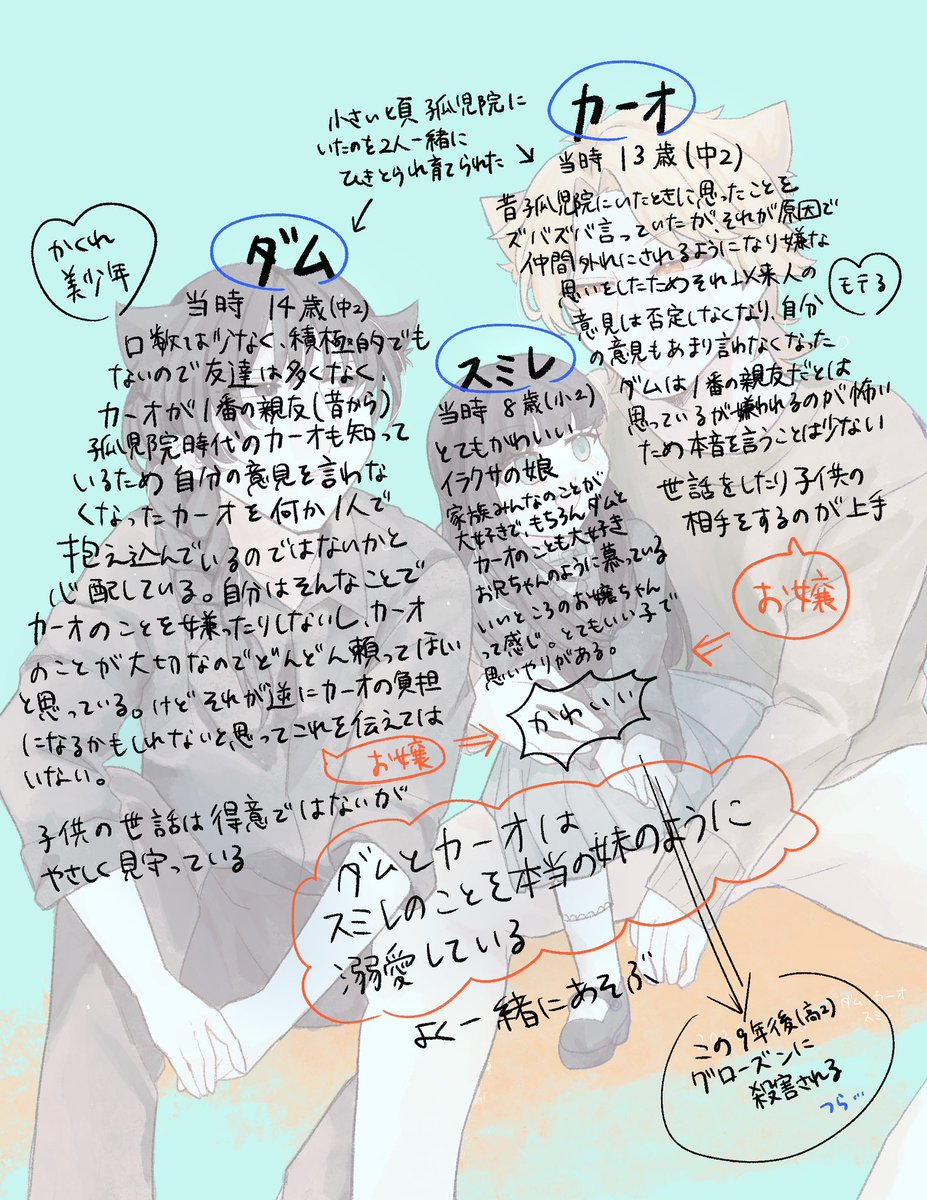 カーオ
当時 13歳(中2)
昔孤児院にいたときに思ったことを
ズバズバ言っていたが、それが原因で
仲間外れにされるようになり嫌な
思いをしたためそれ以来人の
意見は否定しなくなり、自分
の意見もあまり言わなくなった
ダムは1番の親友だとは
思っているが嫌われるのが怖い
ため本音を言うことは少ない
世話をしたり子供の
相手をするのが上手
モテる
お嬢
小さい頃孤児院に
いたのを2人一緒に
ひきとられ育てられた
かくれ
美少年
ダム
当時 14歳(中2)
口数は少なく、積極的でも
ないので友達は多くなく、
カーオが1番の親友(昔から)
孤児院時代のカーオも知って
いるため自分の意見を言わな
くなったカーオを何か1人で
抱え込んでいるのではないかと
心配している。自分はそんなことで
カーオのことを嫌ったりしないし、カーオ
のことが大切なのでどんどん頼ってほしい
と思っている。けどそれが逆にカーオの負担
になるかもしれないと思ってこれを伝えては
いない。
子供の世話は得意ではないが
やさしく見守っている
お嬢
スミレ
当時 8歳(小2)
とてもかわいい
イラクサの娘
家族みんなのことが
大好きで、もちろんダムと
カーオのことも大好き
お兄ちゃんのように慕っている
いいところのお嬢ちゃん
って感じ。とてもいい子で
思いやりがある。
かわいい
ダムとカーオは
スミレのことを本当の妹のように
溺愛している
よく一緒にあそぶ
ダム カーオ
スミ
この9年後(高2)
グローズンに
殺害される
つら